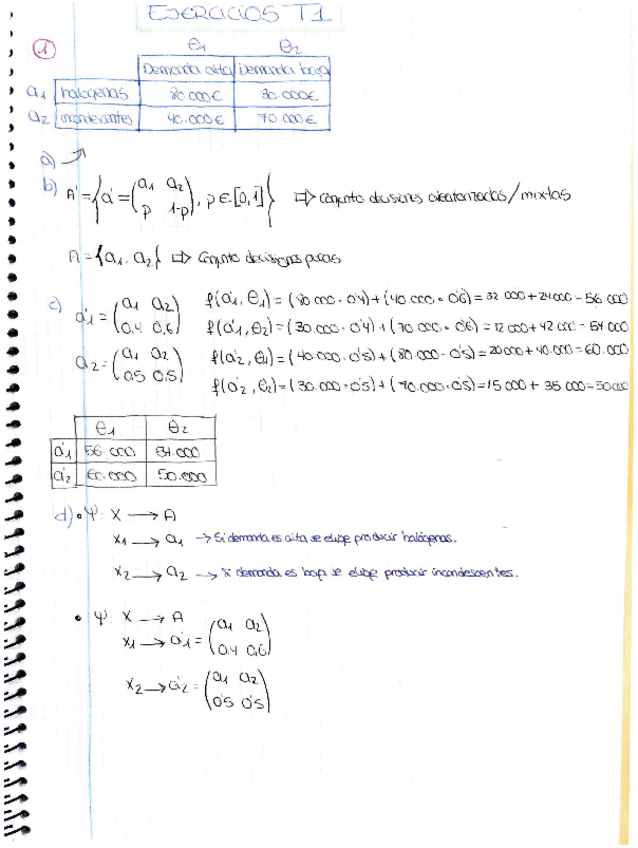 EJERCICIOS T1
1
θ1 θ2
Demanda alta Demanda baja
a1 halógenas 80.000€ 30.000€
a2 incandescentes 40.000€ 70.000€
a)
b) A' = { a' = (a1 a2 / p 1-p), p ∈ [0,1] } ⇒ conjunto decisiones aleatorizadas/mixtas
A = {a1, a2} ⇒ conjunto decisiones puras
c) a'1 = (a1 a2 / 0,4 0,6)
f(a'1, θ1) = (80.000 · 0'4) + (40.000 · 0'6) = 32.000 + 24.000 = 56.000
f(a'1, θ2) = (30.000 · 0'4) + (70.000 · 0'6) = 12.000 + 42.000 = 54.000
a2 = (a1 a2 / 0.5 0.5)
f(a'2, θ1) = (40.000 · 0's) + (80.000 · 0's) = 20.000 + 40.000 = 60.000
f(a'2, θ2) = (30.000 · 0's) + (70.000 · 0's) = 15.000 + 35.000 = 50.000
θ1 θ2
a'1 56.000 54.000
a'2 60.000 50.000
d) • Ψ: X → A
x1 → a1 → Si demanda es alta se elige producir halógenas.
x2 → a2 → Si demanda es baja se elige producir incandescentes.
• Ψ': X → A
x1 → a'1 = (a1 a2 / 0,4 0,6)
x2 → a'2 = (a1 a2 / 0's 0's)